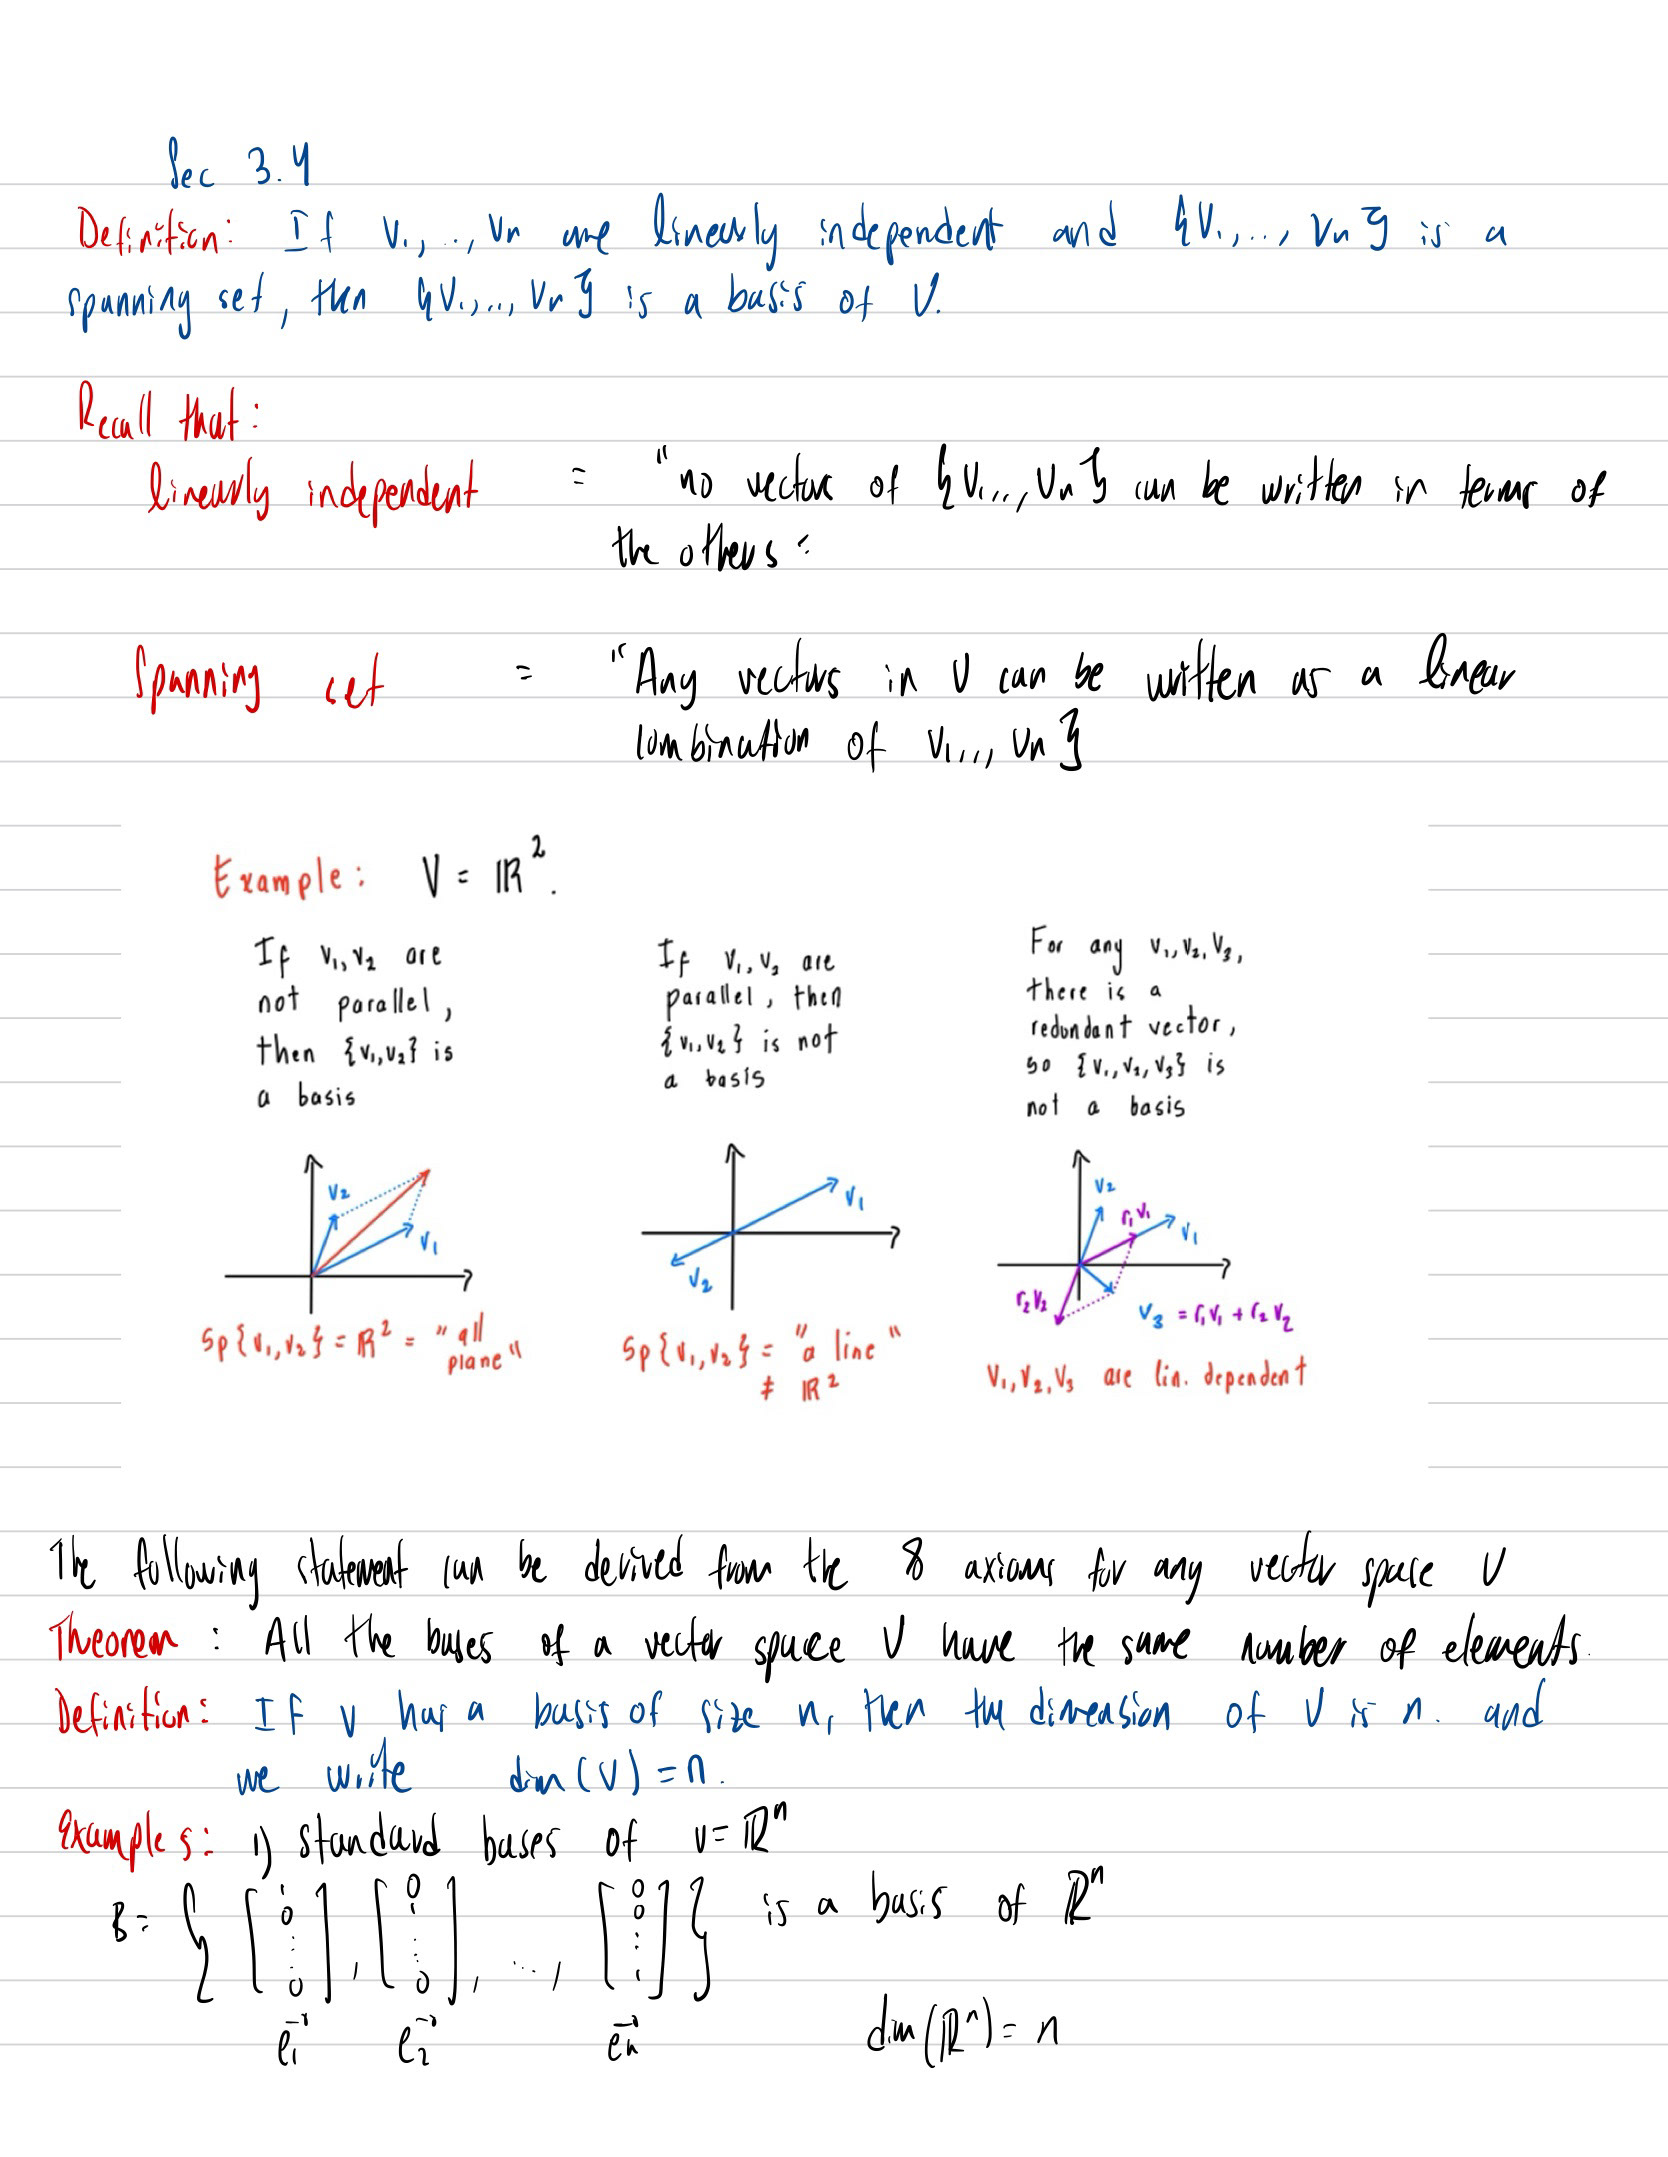 Sec 3.4
Definition: If v1,..,vn are linearly independent and {v1,..,vn} is a
spanning set, then {v1,..,vn} is a basis of V.
Recall that:
linearly independent = "no vector of {v1..,vn} can be written in terms of
the others"
Spanning set = "Any vectors in V can be written as a linear
combination of v1,..,vn}
Example: V = ℝ².
If v1,v2 are
not parallel,
then {v1,v2} is
a basis
v2
v1
Sp{v1,v2} = ℝ² = "all
plane"
If v1,v2 are
parallel, then
{v1,v2} is not
a basis
v1
v2
Sp{v1,v2} = "a line"
≠ ℝ²
For any v1,v2,v3,
there is a
redundant vector,
so {v1,v2,v3} is
not a basis
v2
r1v1
v1
r2v2
v3 = r1v1 + r2v2
v1,v2,v3 are lin. dependent
The following statement can be derived from the 8 axioms for any vector space V
Theorem: All the bases of a vector space V have the same number of elements.
Definition: If V has a basis of size n, then the dimension of V is n. and
we write dim(V)=n.
Examples: 1) standard bases of V=ℝⁿ
B= { [1 0 ⋮ 0], [0 1 ⋮ 0], ..., [0 0 ⋮ 1] } is a basis of ℝⁿ
e⃗1 e⃗2 e⃗n dim(ℝⁿ)= n